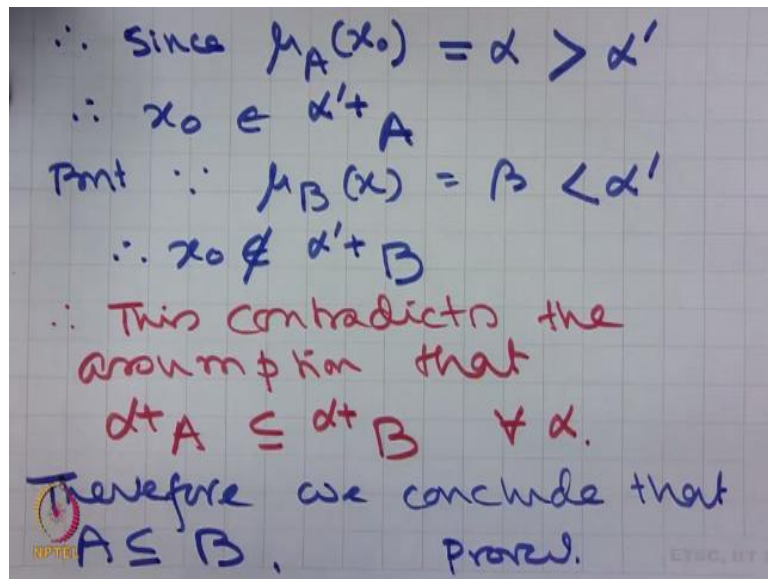 ∴ Since μ_A(x₀) = α > α'
∴ x₀ ∈ α'+A
But ∵ μ_B(x) = β < α'
∴ x₀ ∉ α'+B
∴ This contradicts the
assumption that
α+A ⊆ α+B ∀ α.
Therefore we conclude that
A ⊆ B. Proved.
NPTEL
ETSC, IIT